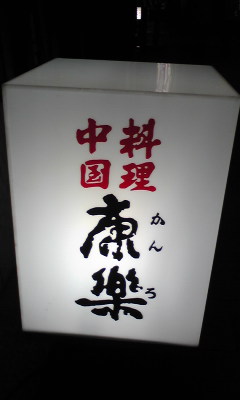 中国
料理
康樂
かんろ